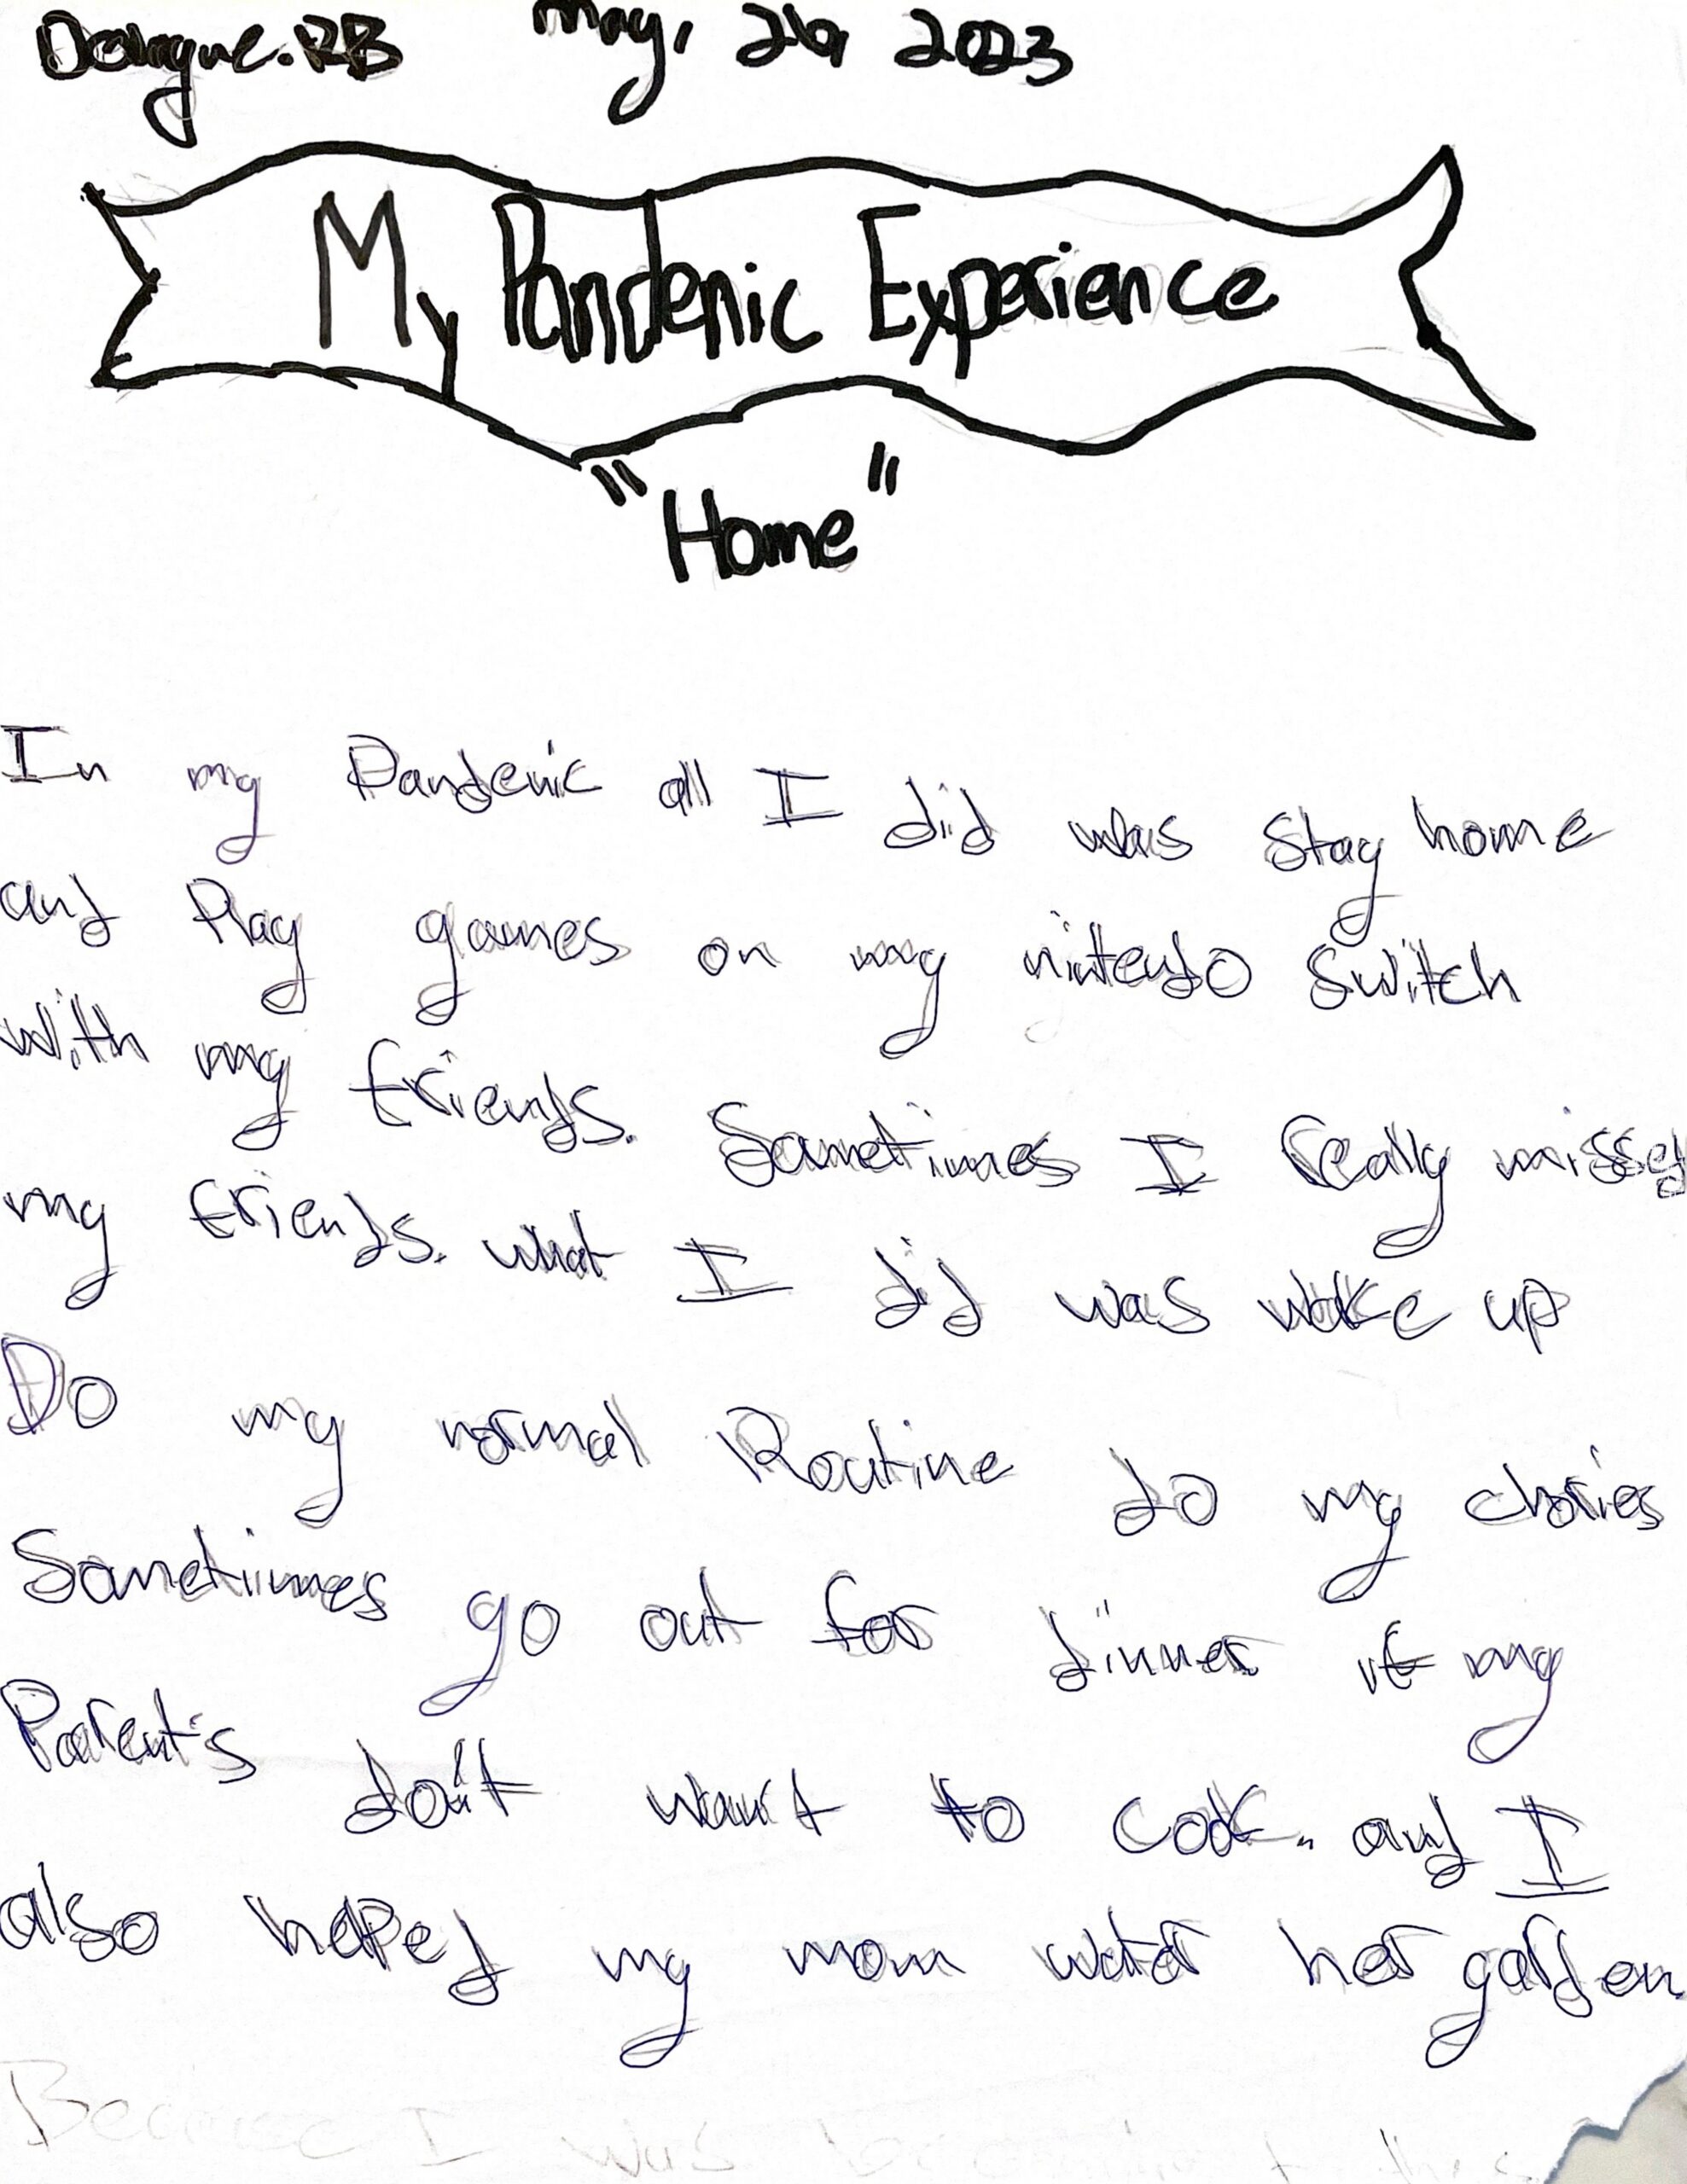 RB May, 26, 2023
My Pandenic Experience
"Home"
In my Pandenic all I did was stay home
and Play games on my nintendo switch
with my friends. Sometimes I really missed
my friends. what I did was woke up
Do my normal Routine do my chories
Sometimes go out for dinner if my
Parent's don't want to cook. and I
also helped my mom water her garden
Because I was